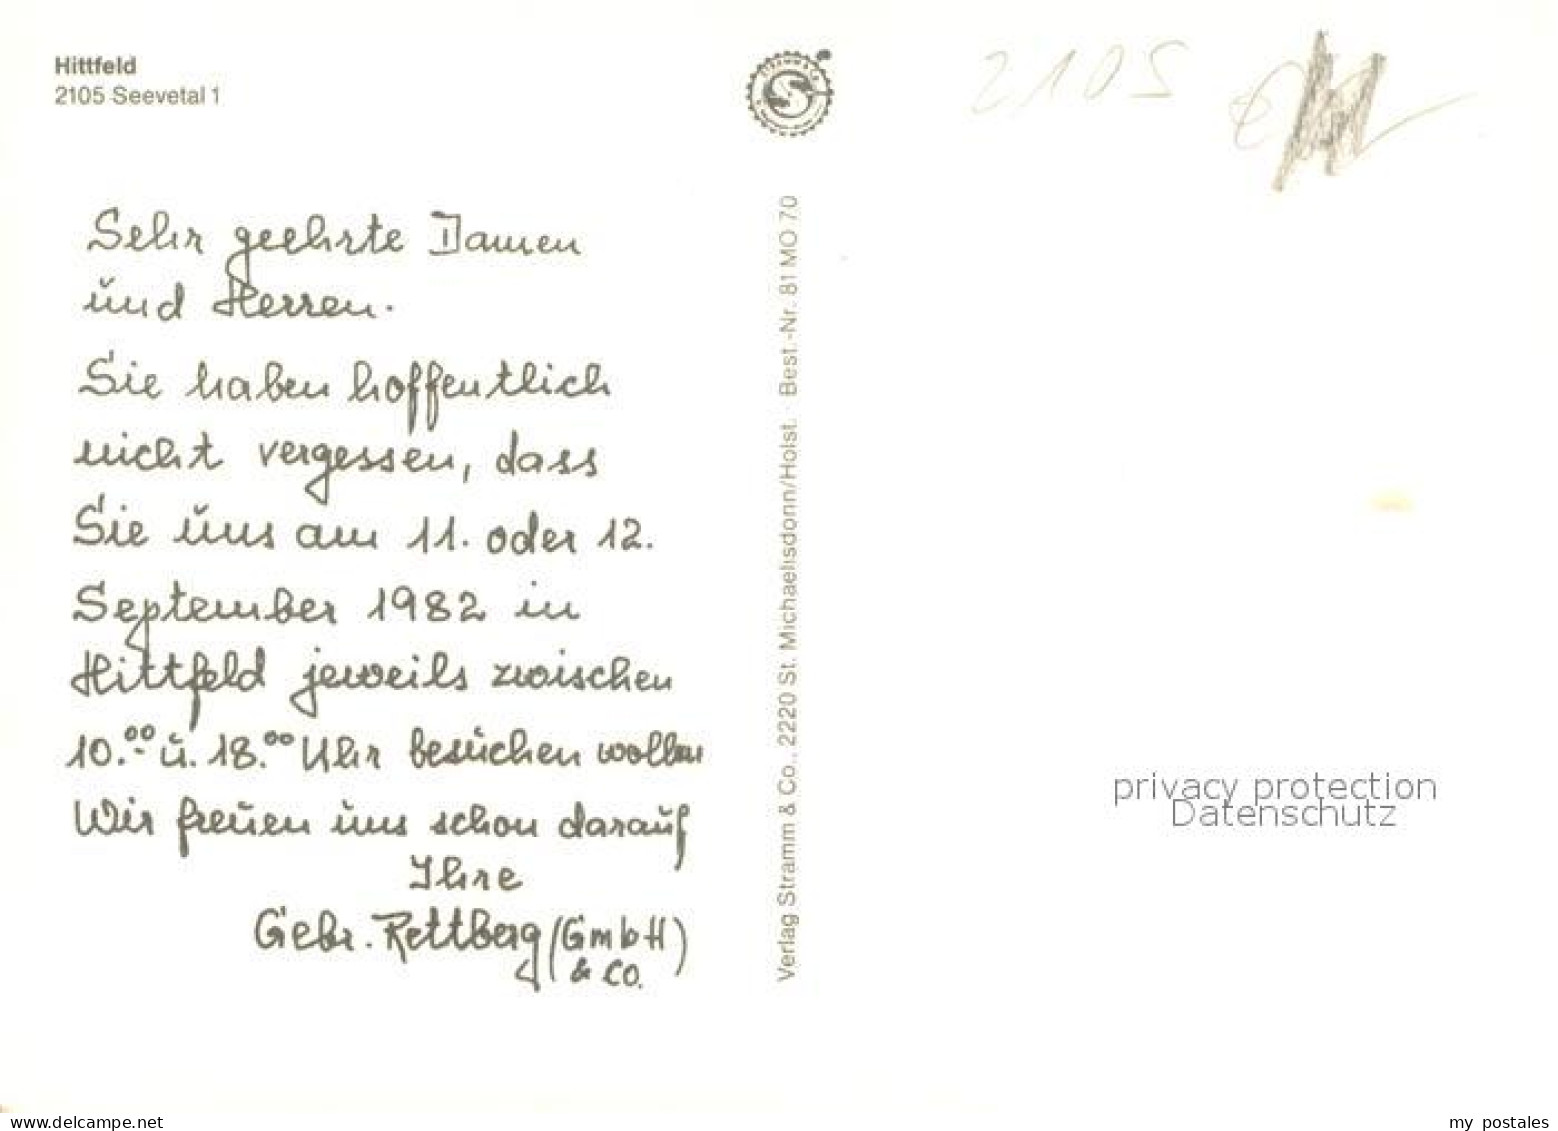 Hittfeld
2105 Seevetal 1
2105
Sehr geehrte Damen
und Herren.
Sie haben hoffentlich
nicht vergessen, dass
Sie uns am 11. oder 12.
September 1982 in
Hittfeld jeweils zwischen
10.00 u. 18.00 Uhr besuchen wollen
Wir freuen uns schon darauf
Ihre
Gebr. Rettberg (GmbH)
& CO.
Verlag Stramm & Co., 2220 St. Michaelisdonn/Holst. Best.-Nr. 81 MO 70
privacy protection
Datenschutz
www.delcampe.net
my_postales